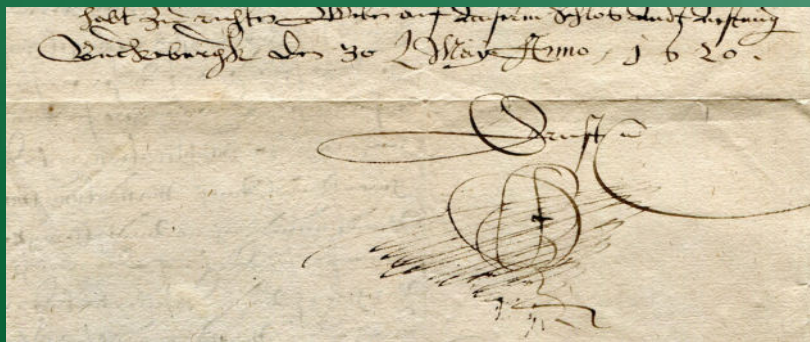 habt zu richten. Geben auf unserm Schlos undt Vestung
Bückeburgk den 30 May Anno, 1620.
Ernst